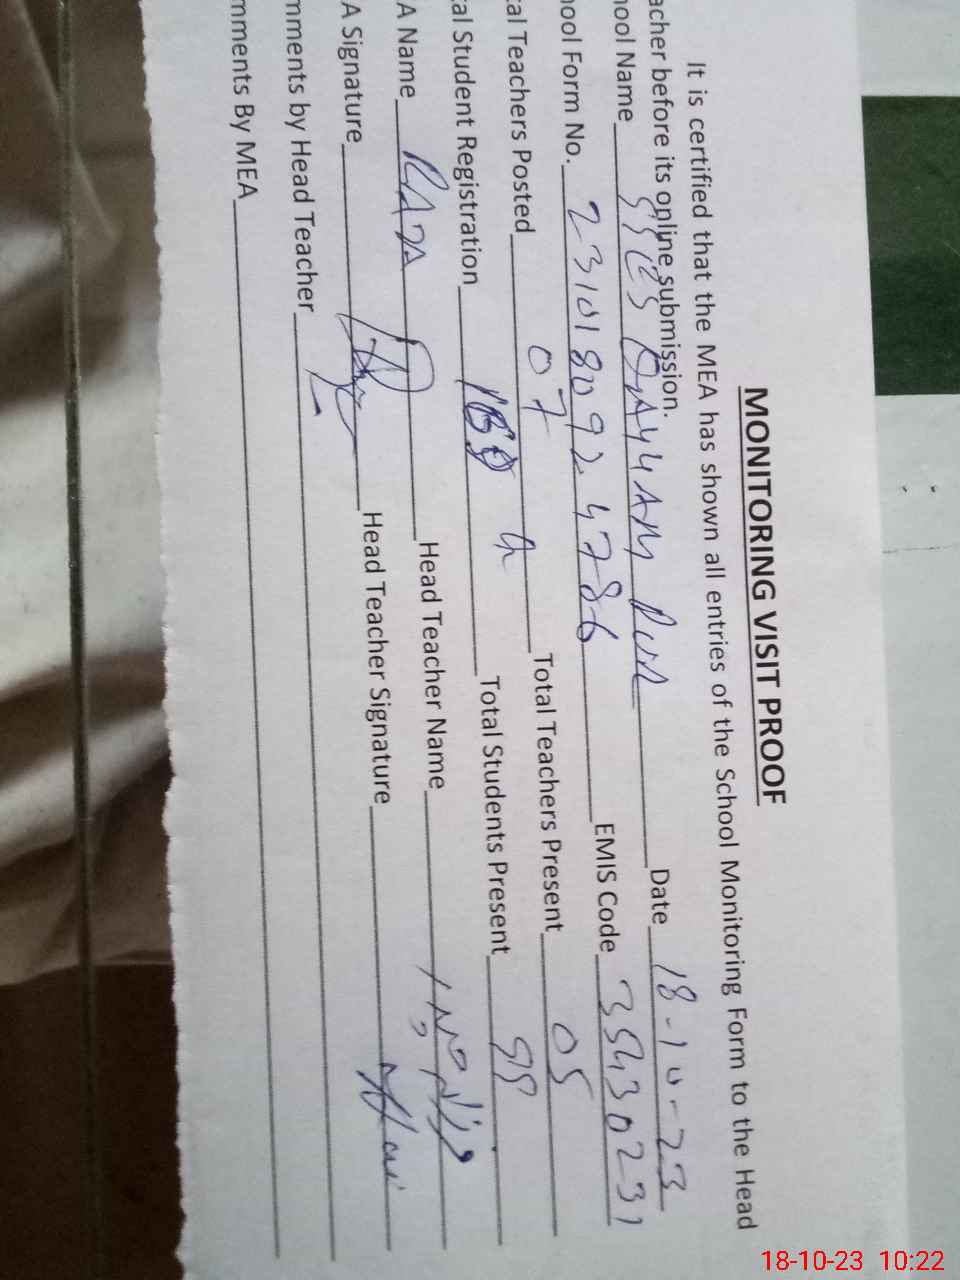 MONITORING VISIT PROOF
It is certified that the MEA has shown all entries of the School Monitoring Form to the Head
acher before its online submission.
ool Name Date 18-10-23
ool Form No. 2310180924786 EMIS Code 35430231
al Teachers Posted 07 Total Teachers Present 05
al Student Registration Total Students Present 99
A Name RAZA Head Teacher Name
A Signature Head Teacher Signature
mments by Head Teacher
mments By MEA
18-10-23 10:22